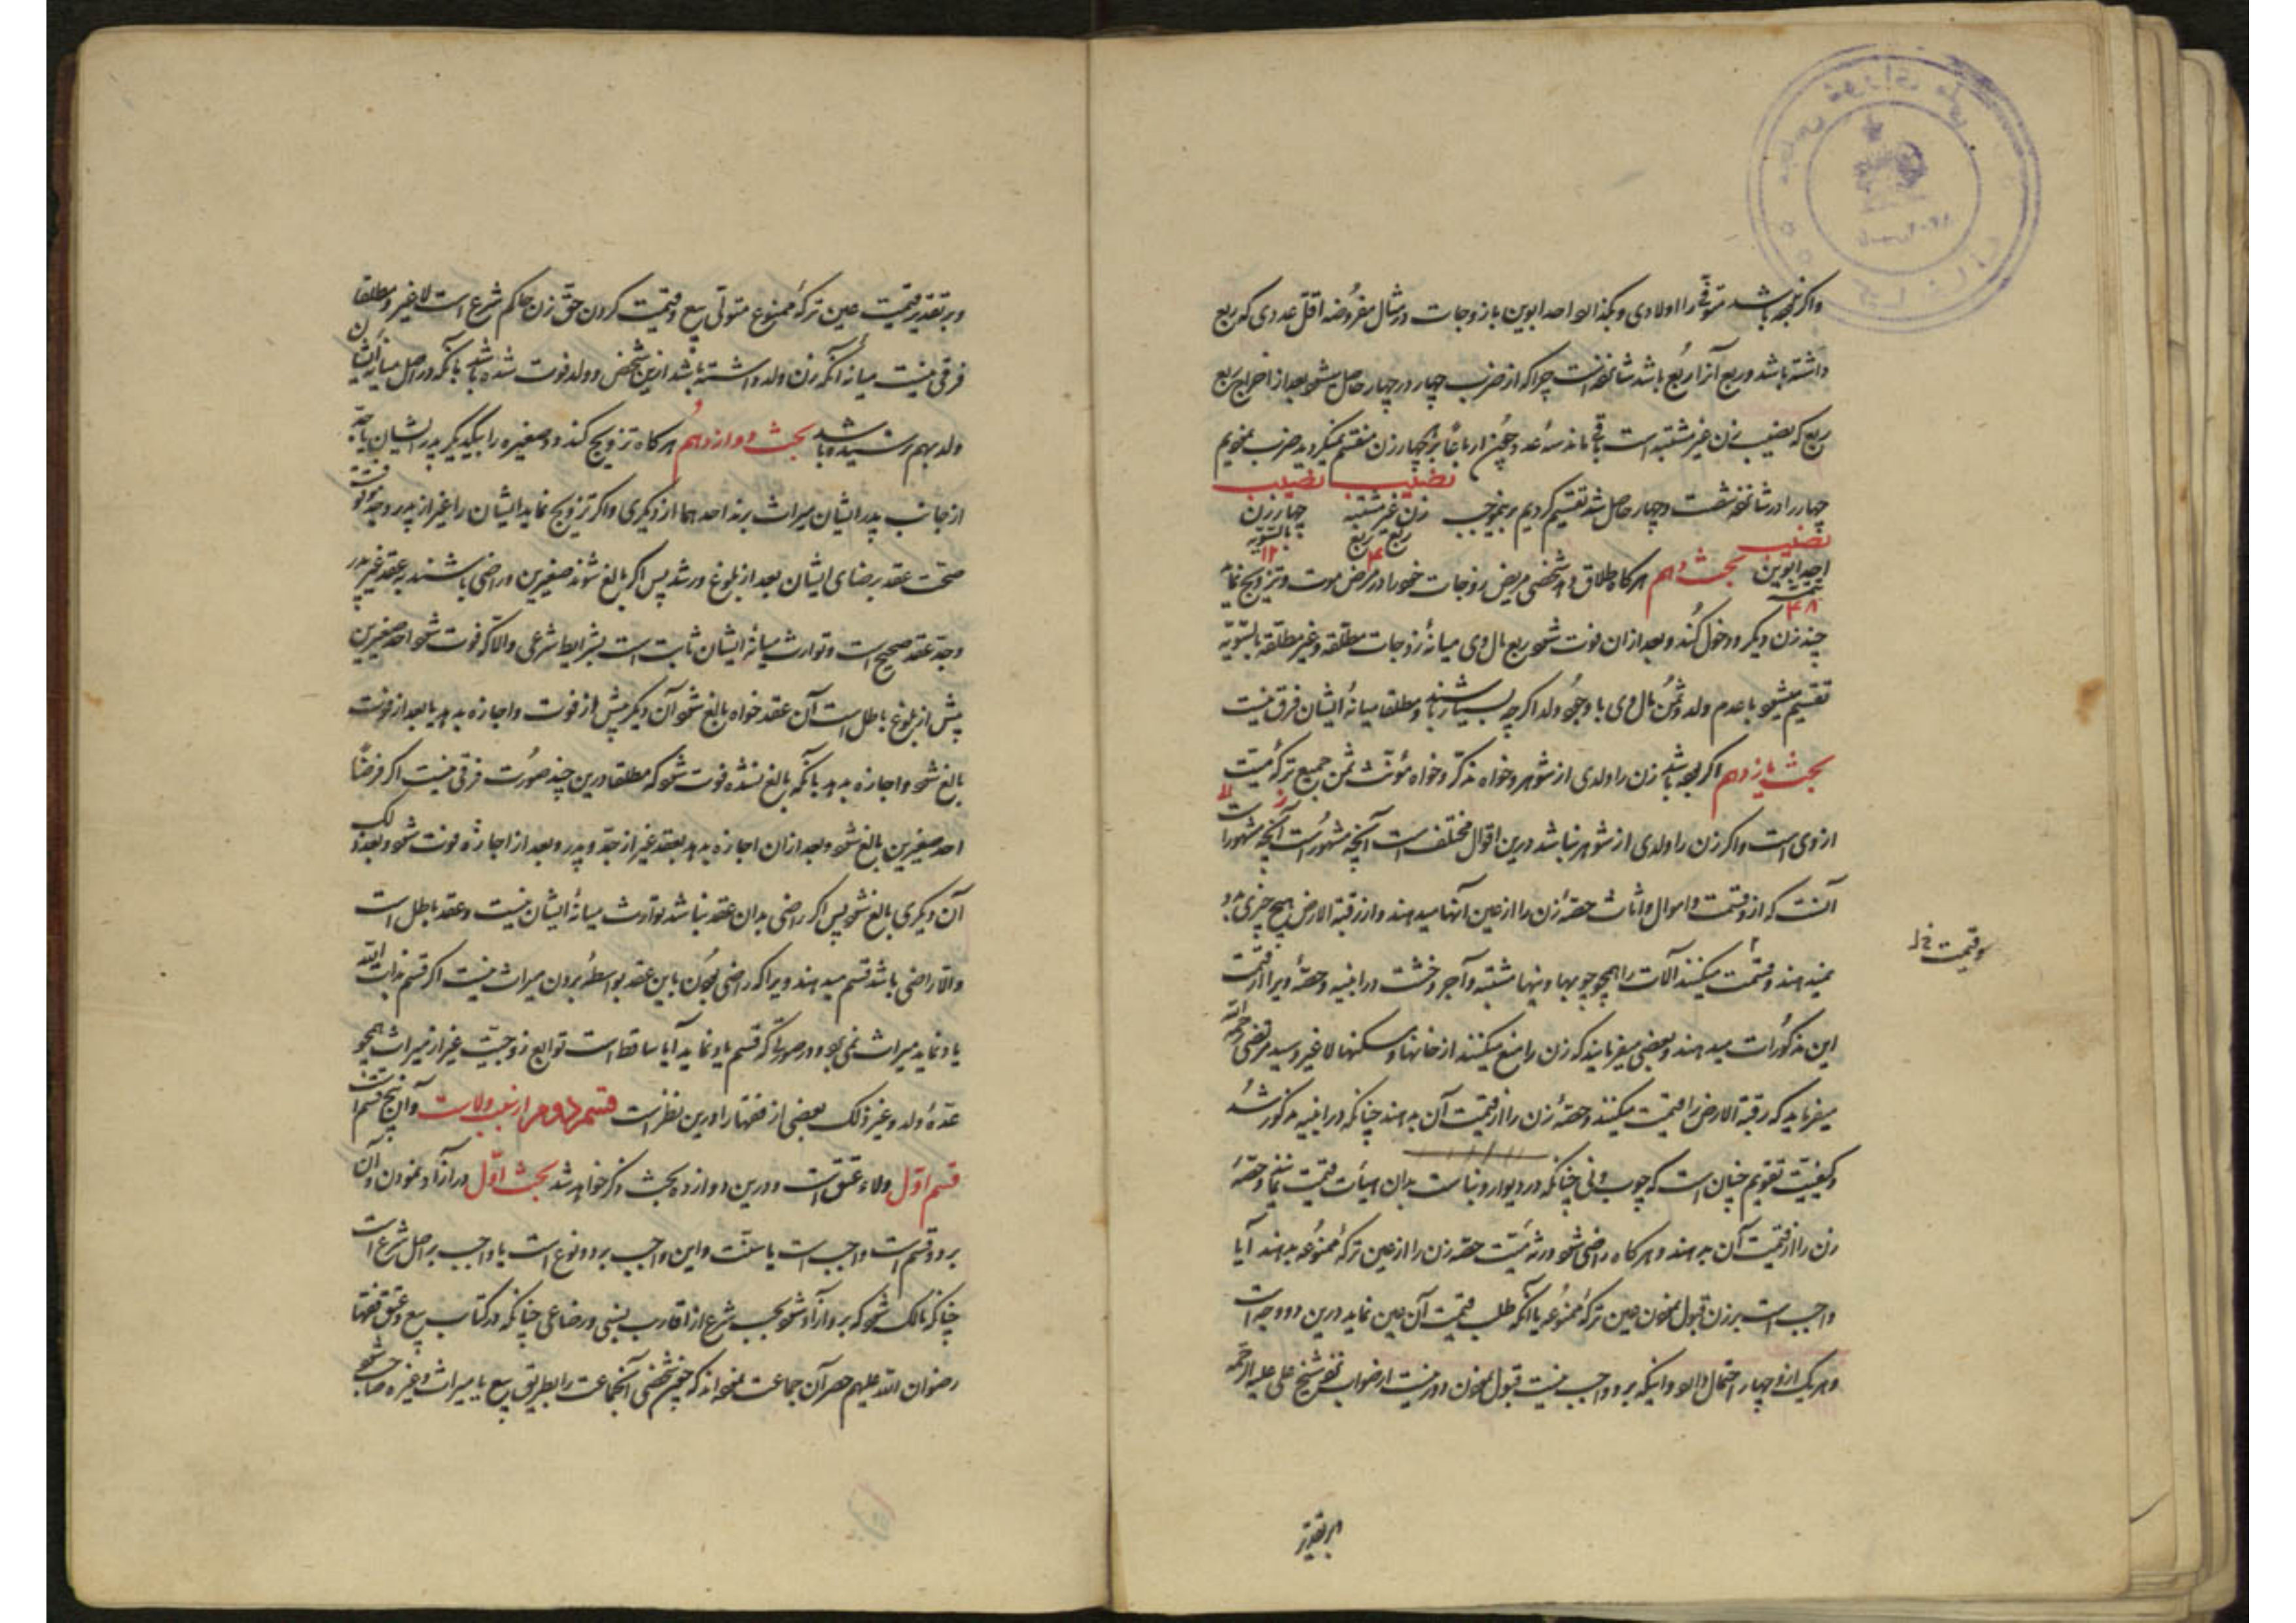 واکر نبوده باشد متوفی را اولادی و همچنین احد ابوین با زوجات در مثال مفروضه اقل عددی که ربع
داشته باشد و ربع آنرا ربع باشد شانزده است چرا که از ضرب چهار در چهار حاصل میشود بعد از اخراج ربع
ربع که نصیب زن غیر مشتبه است باقی ماند سه عدد و چون ارباعا بر چهار زن منقسم نمیگردید ضرب نمودیم
چهار را در شانزده شصت و چهار حاصل شد تقسیم کردیم برینموجب
نصیب زن غیر مشتبه ربع ربع ۴
نصیب چهار زن بالسویه ۱۲
نصیب احد ابوین ۴۸
بحث دهم هرکاه طلاق دهد شخصی مریض زوجات خود را در مرض موت و تزویج نماید
چند زن دیکر و دخول کند و بعد از ان فوت شود ربع مال وی میانهٔ زوجات مطلقه و غیر مطلقه بالسویه
تقسیم میشود با عدم ولد و ثمن مال وی با وجود ولد اکرچه بسیار باشند و مطلقا میانهٔ ایشان فرق نیست
بحث یازدهم اکر بوده باشد زن را ولدی از شوهر و خواه مذکر و خواه مؤنث ثمن جمیع ترکهٔ میت
ازوی است و اکر زن را ولدی از شوهر نباشد درین اقوال مختلف است آنچه مشهور است
آنست که از و اموال و اثاث حصهٔ زن را از عین آنها میدهند و از رقبة الارض هیچ چیزی بوی
نمیدهند و قسمت میکنند آلات را همچو چوبها و آجر و خشت در ابنیه و حصهٔ ویرا از قیمت
و قیمت خ ل
این مذکورات میدهند و بعضی میفرمایند که زن را منع میکنند از خانها و مسکنها لا غیر و سید مرتضی رحمه الله
میفرماید که رقبة الارض را قیمت میکنند و حصهٔ زن را از قیمت آن بدهند چنانکه در ابنیه مذکور شد
و کیفیت تقویم چنان است که چوب و نی چنانکه در دیوار و بناست بدان هیأت قیمت نمایند و حصهٔ
زن را از قیمت آن بدهند و هرکاه راضی شود ورثهٔ میت حصه زن را از عین ترکهٔ ممنوعه بدهند آیا
واجب است بر زن قبول نمودن عین ترکهٔ ممنوعه یا آنکه طلب قیمت آن عین نماید درین دو وجه است
و هر یک ازو چهار احتمال دارد و اینکه برو واجب نیست قبول نمودن دور نیست از صواب شیخ علی علیه الرحمه
وبر تقدیر
وبر تقدیر قیمت عین ترکهٔ ممنوع متولی بیع و قیمت کردن حق زن حاکم شرع است لا غیر و مطلقا
فرقی نیست میانهٔ آنکه زن ولد داشته باشد ازین شخص و ولد فوت شده باشد یا آنکه در اصل میانهٔ ایشان
ولد بهم نرسیده باشد بحث دوازدهم هرکاه تزویج کند دو صغیره را بیکدیکر پدر ایشان یا جد
از جانب پدر ایشان میراث برند احدهما از دیکری و اکر تزویج نماید ایشان را غیر از پدر و جد موقوفست
صحت عقد برضای ایشان بعد از بلوغ و رشد پس اکر بالغ شوند صغیرین و راضی باشند بعقد غیر پدر
و جد عقد صحیح است و توارث میانهٔ ایشان ثابت است بشرایط شرعی و الا که فوت شود احد صغیرین
پیش از بلوغ باطل است آن عقد خواه بالغ شود آن دیکر پیش از فوت و اجازه بدهد یا بعد از فوت
بالغ شود و اجازه بدهد یا آنکه بالغ نشده فوت شود که مطلقا درین چند صورت فرقی نیست اکر فرضا
احد صغیرین بالغ شود و بعد از ان اجازه بدهد بعقد غیر از جد و پدر و بعد از اجازه فوت شود و بعد ذلک
آن دیکری بالغ شود پس اکر راضی بدان عقد نباشد توارث میانهٔ ایشان نیست و عقد باطل است
و الا راضی باشد قسم میدهند ویرا که راضی بودن باین عقد بواسطهٔ بردن میراث نیست اکر قسم بذات الله
یاد نماید میراث می‌برد و در صورتی که قسم یاد نماید آیا ساقط است توابع زوجیت غیر از میراث همچو
عدهٔ ولد و غیر ذلک بعضی از فقها را درین نظر است قسم دوم از سبب ولاست و آن پنج قسم است
قسم اول ولاء عتق است و درین دوازده بحث ذکر خواهد شد بحث اول در آزاد نمودن و آن
بر دو قسم است واجب است یا سنت و این واجب بر دو نوع است یا واجب بر اصل شرع است
چنانکه مالک شود که برو آزاد شود بحسب شرع از اقارب نسبی و رضاعی چنانکه در کتاب بیع و عتق فقها
رضوان الله علیهم حصر آن جماعت نموده‌اند که چون شخصی آنجماعت را بطریق بیع یا میراث و غیره صاحب شود